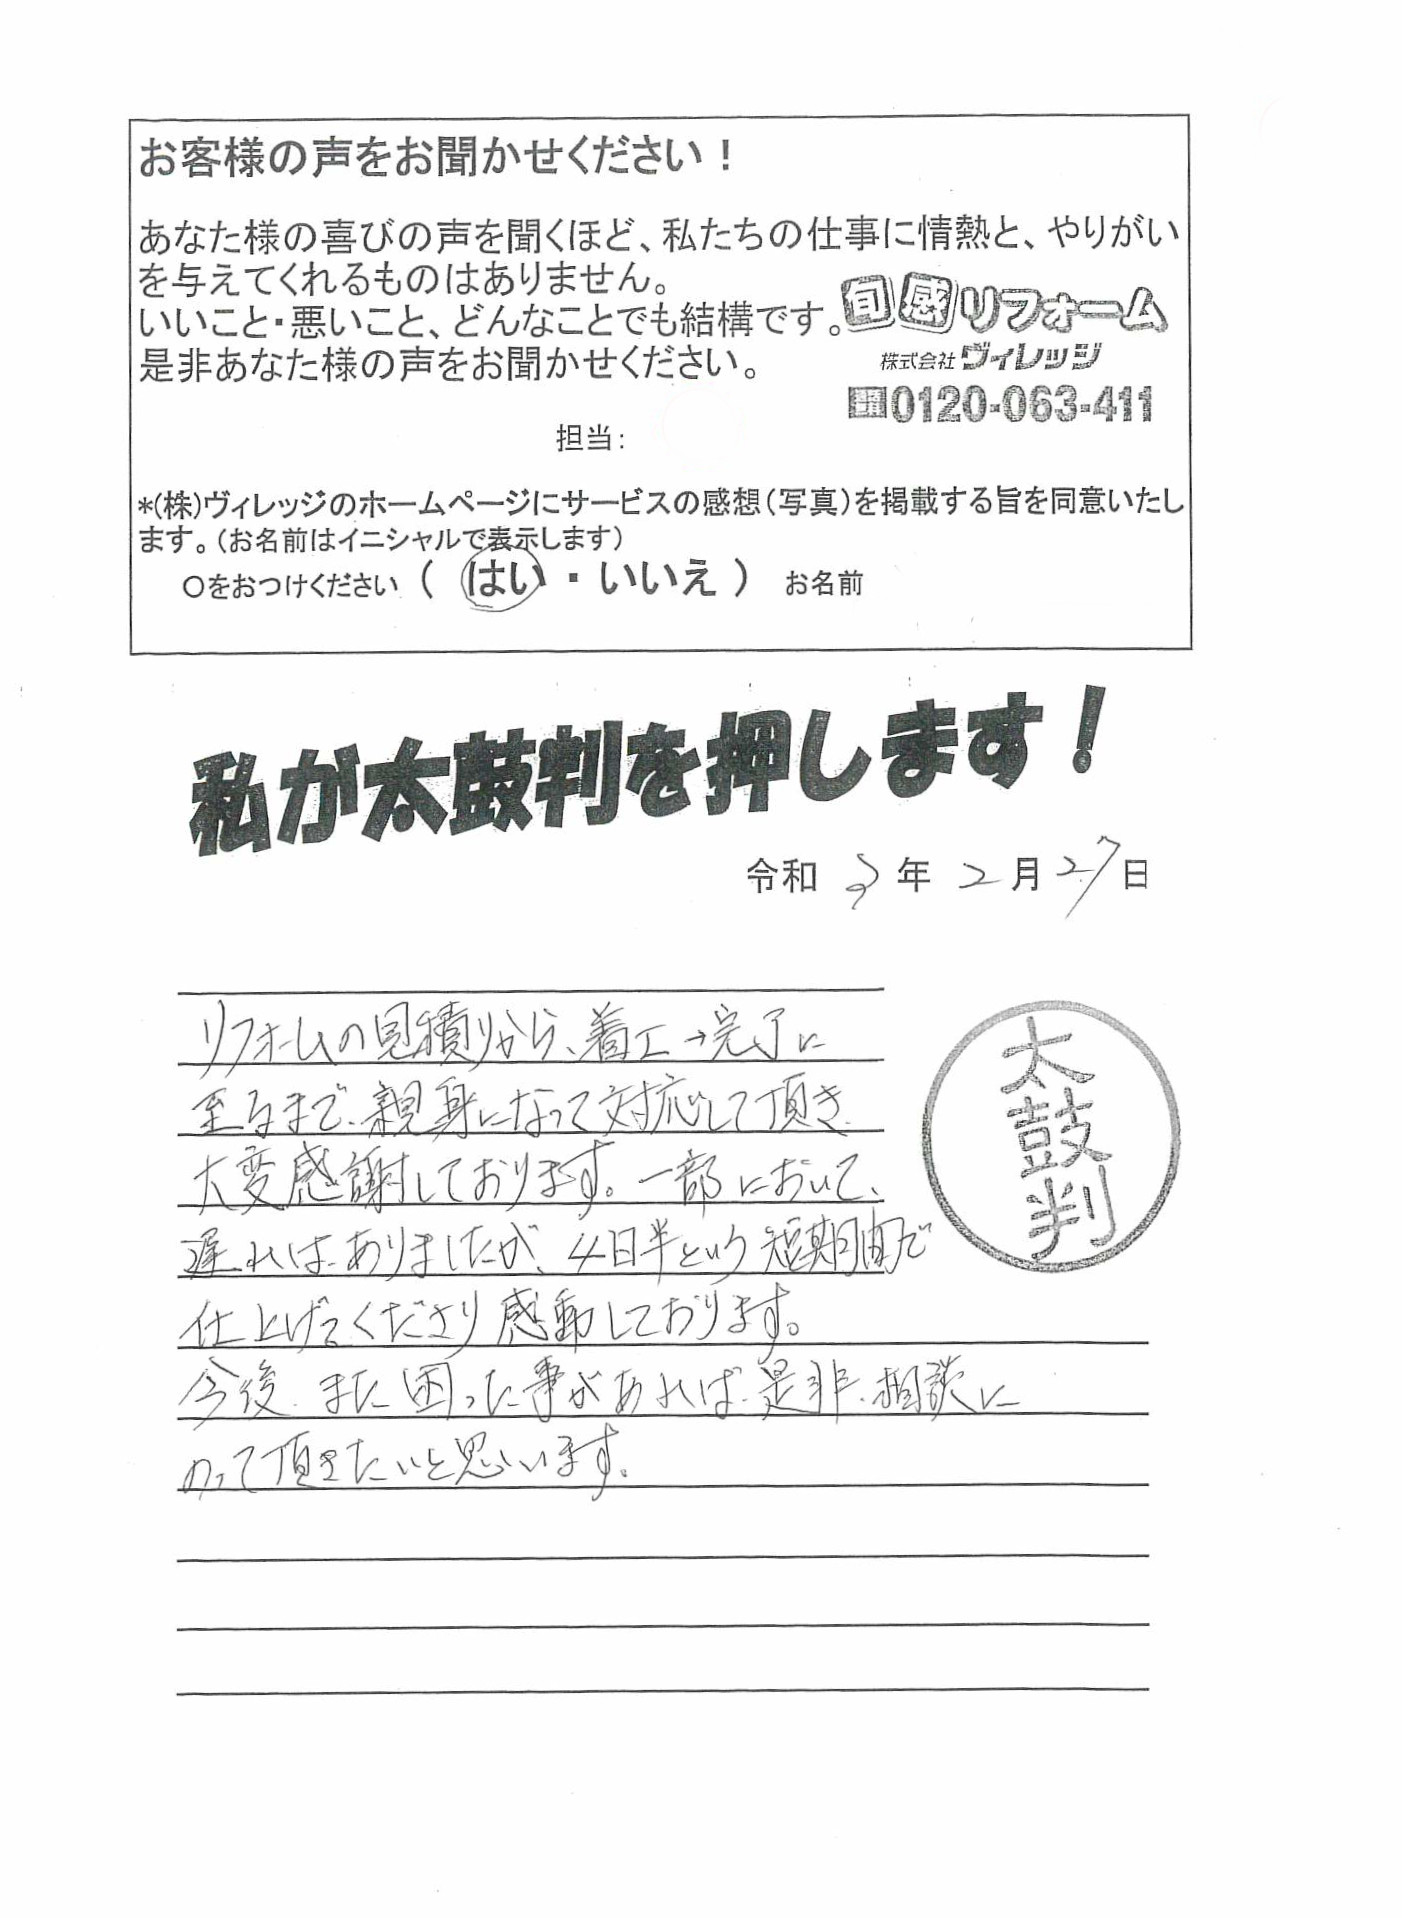 お客様の声をお聞かせください！
あなた様の喜びの声を聞くほど、私たちの仕事に情熱と、やりがい
を与えてくれるものはありません。
いいこと・悪いこと、どんなことでも結構です。
是非あなた様の声をお聞かせください。
旬感リフォーム
株式会社ヴィレッジ
0120-063-411
担当：
*(株)ヴィレッジのホームページにサービスの感想（写真）を掲載する旨を同意いたし
ます。（お名前はイニシャルで表示します）
○をおつけください（ はい ・ いいえ ） お名前
私が太鼓判を押します！
令和 3 年 2 月 27 日
リフォームの見積りから、着工→完了に
至るまで、親身になって対応して頂き
大変感謝しております。一部において、
遅れは、ありましたが、4日半という短期間で
仕上げてくださり感動しております。
今後、また困った事があれば、是非、相談に
のって頂きたいと思います。
太鼓判